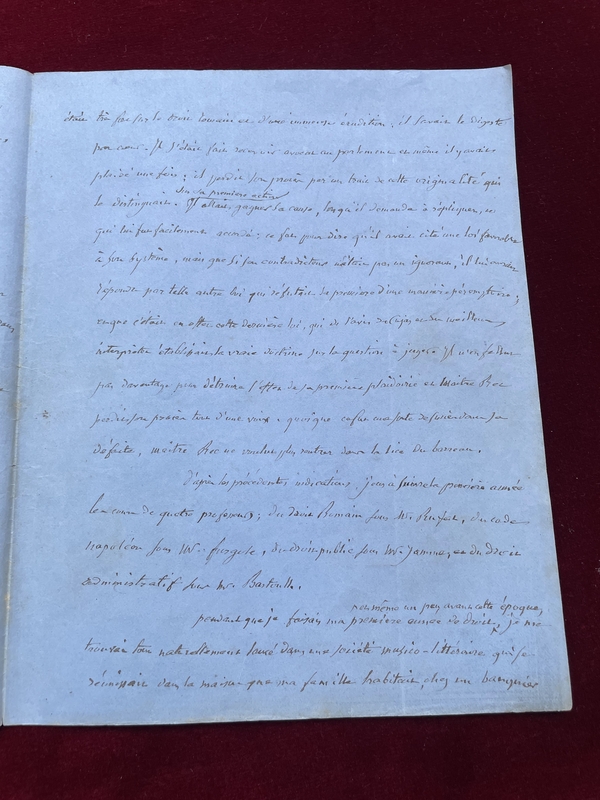 était très fort sur le droit romain et d'une immense érudition, il savait le digeste
par cœur. Il s'était fait recevoir avocat au parlement et même il y avait
plaidé une fois; il perdit son procès par un trait de cette originalité qui
sur sa première action
le distinguait. Il allait gagner la cause, lorsqu'il demanda à répliquer, ce
qui lui fut facilement accordé; ce fut pour dire qu'il avait cité une loi favorable
à son système, mais que si son contradicteur n'était pas un ignorant, il lui aurait
répondu par telle autre loi qui réfutait la première d'une manière péremptoire;
et que c'était en effet cette dernière loi, qui de l'avis de Cujas et des meilleurs
interprètes établissait la vraie doctrine sur la question à juger. Il n'en fallut
pas davantage pour détruire l'effet de sa première plaidoirie et maître Roc
perdit son procès tout d'une voix. quoique ce fut une sorte de suicide dans sa
défaite, maître Roc ne voulut plus rentrer dans la lice du barreau.
d'après les précédentes indications, j'eus à suivre la première année
les cours de quatre professeurs; du droit Romain sous Mr. Ruffat, du code
napoléon sous Mr. furgole, du droit public sous Mr. Jamme, et du droit
administratif sous Mr. Bastoulh.
ou même un peu avant cette époque,
pendant que je faisais ma première année de droit, je me
trouvais tout naturellement lancé dans une société musico-littéraire qui se
réunissait dans la maison que ma famille habitait, chez un banquier